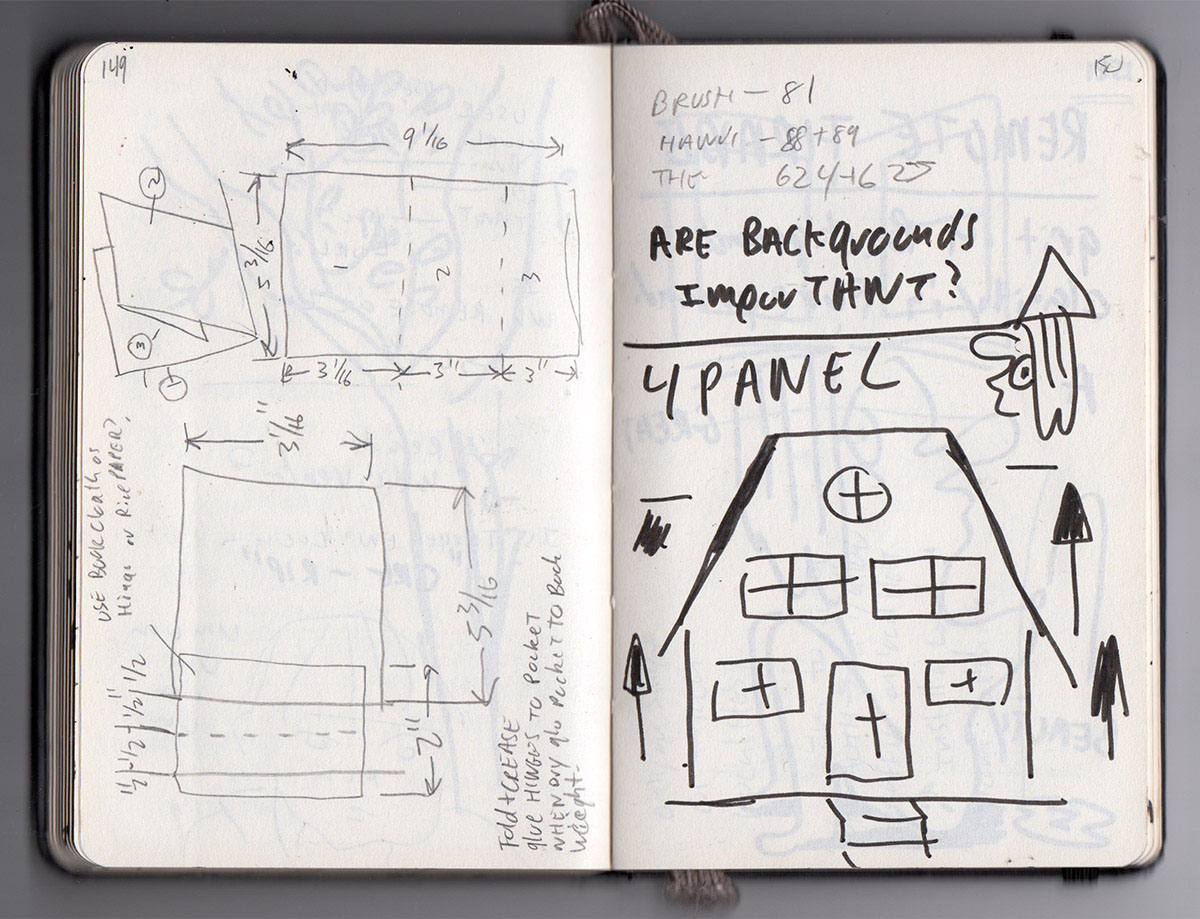 149
9 1/16
2
5 3/16
1
2
3
3
1
3 1/16
3"
3"
3 1/16"
USE BOOKCloth as
Hinge or Rice PAPER?
5 3/16
1/2 1/2 1/2 1/2"
2"
Fold + CREASE
glue HINGES TO Pocket
WHEN dry glue Pocket to Book
Weight
150
BRUSH - 81
- 88 + 89
THE 624+625
ARE BACkgrounds
ImporTANT?
4 PANEL